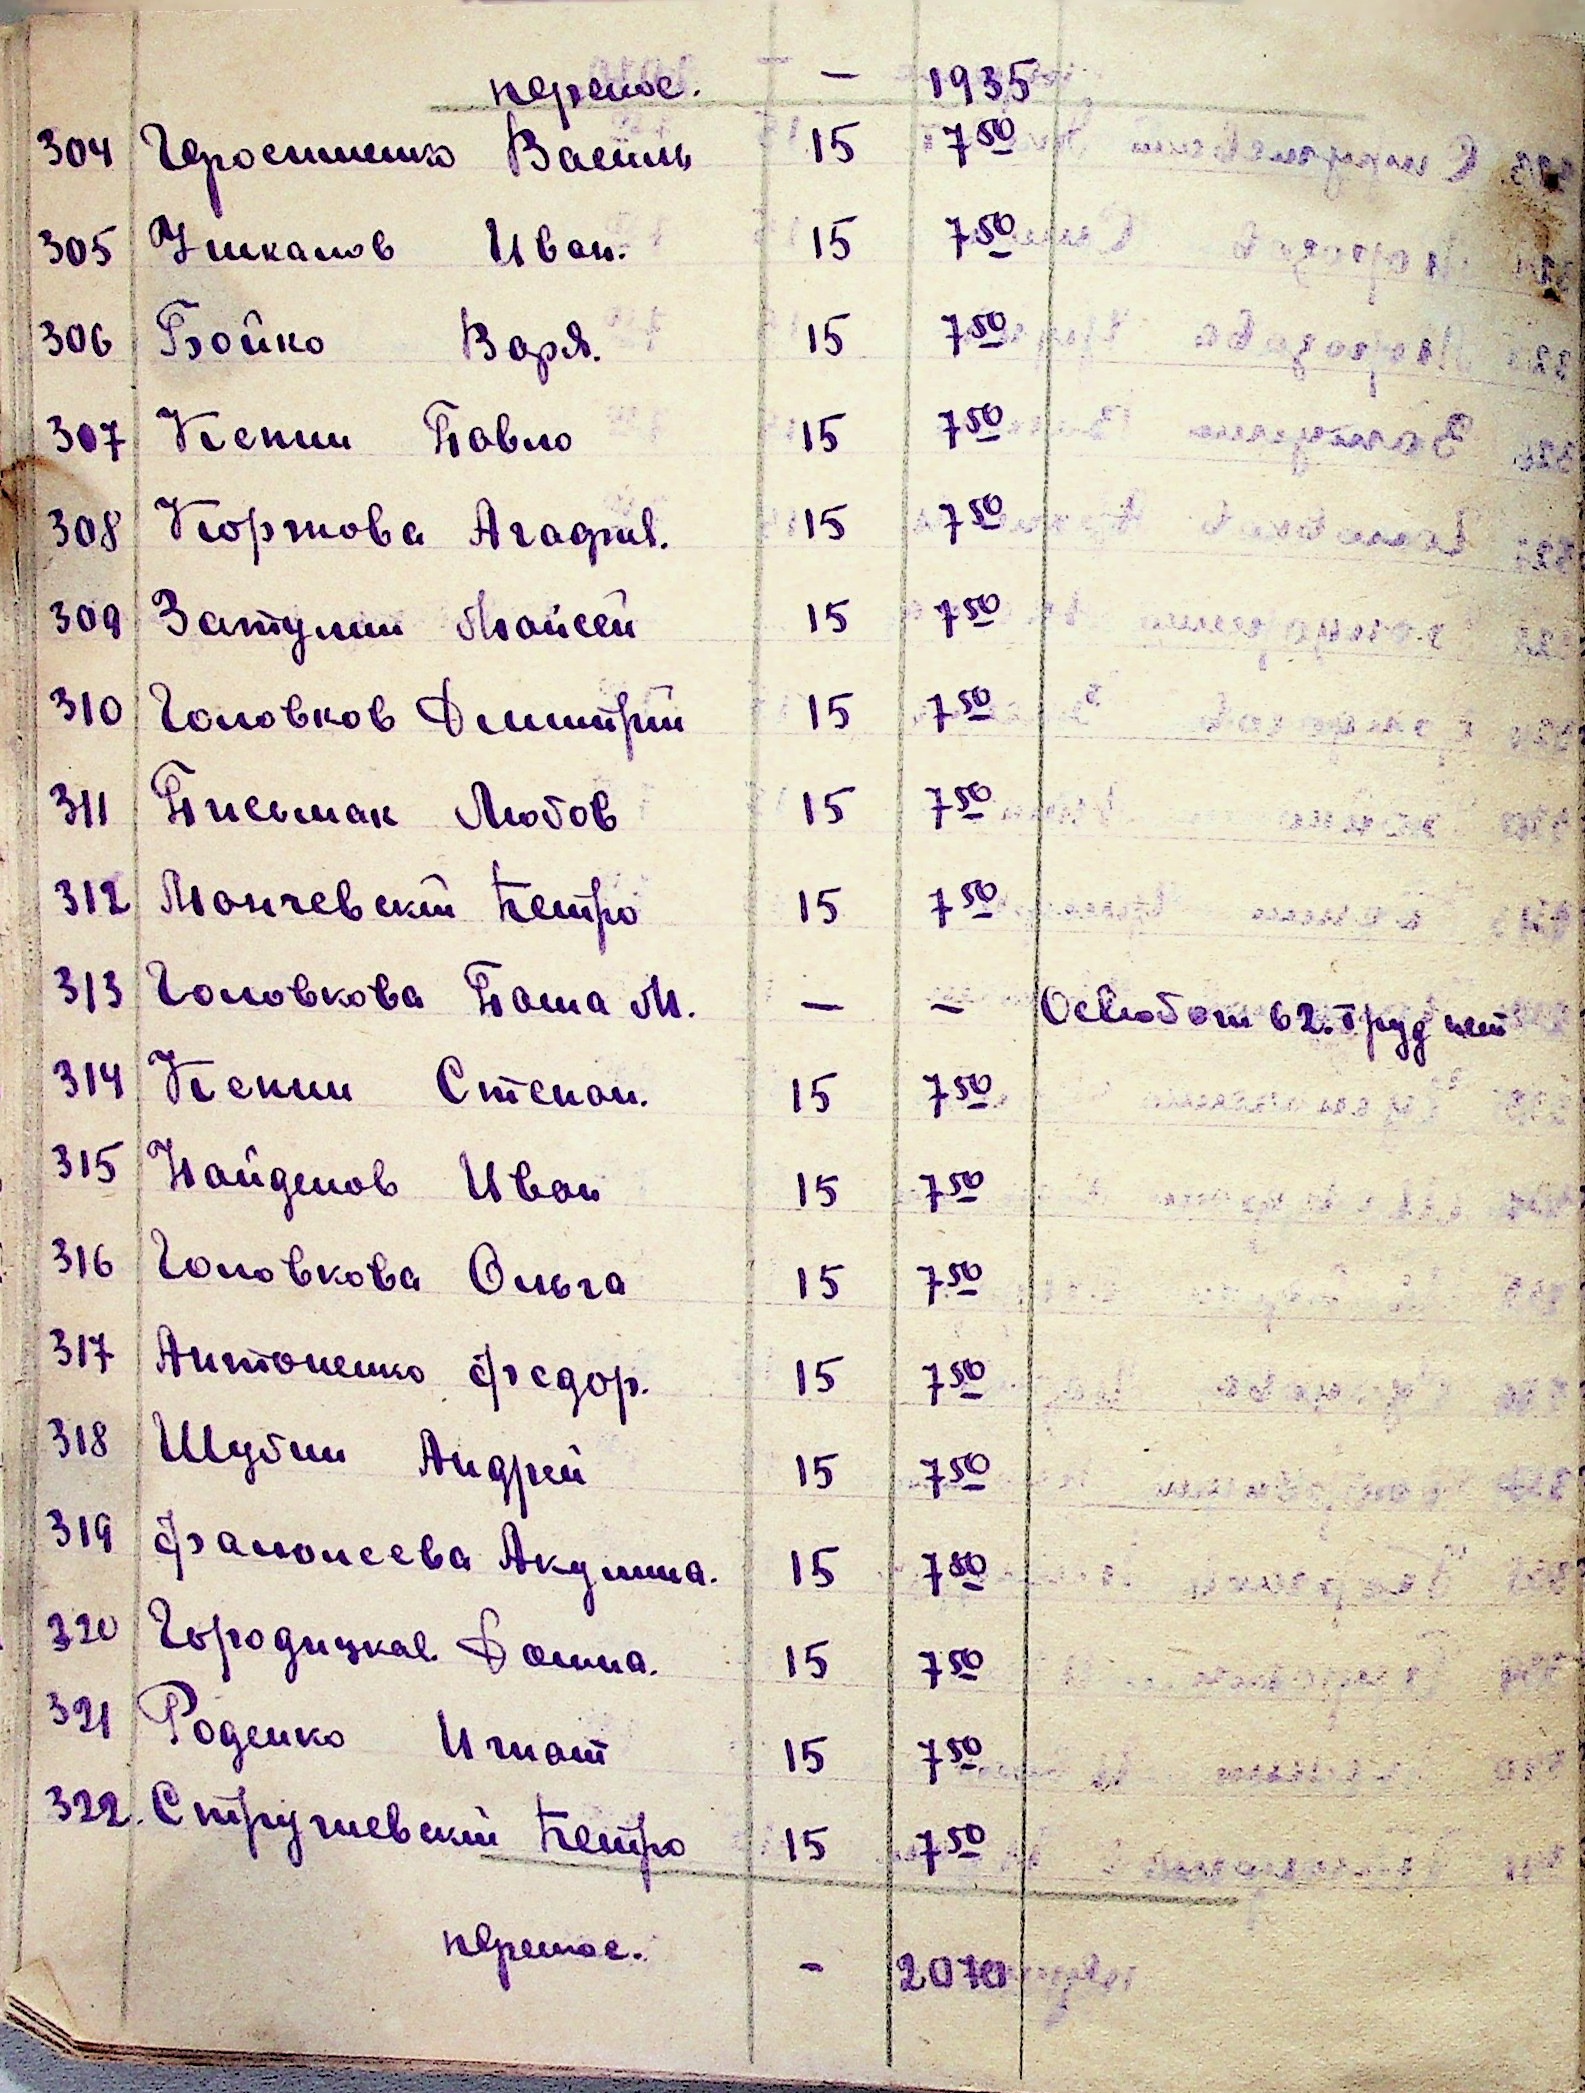 перенос. – 1935
304 Геростненко Василь 15 7 50
305 Ушкалов Иван. 15 7 50
306 Бойко Варя. 15 7 50
307 Кекин Павло 15 7 50
308 Коржова Агафия. 15 7 50
309 Затулин Мойсей 15 7 50
310 Головков Дмитрій 15 7 50
311 Письмак Любов 15 7 50
312 Манчевскій Петро 15 7 50
313 Головкова Паша М. – – Освобот 62. труд нет
314 Кекин Степан. 15 7 50
315 Найденов Иван 15 7 50
316 Головкова Ольга 15 7 50
317 Антоненко Федор. 15 7 50
318 Шубин Андрей 15 7 50
319 Фалоисева Акулина. 15 7 50
320 Городицкая. Домна. 15 7 50
321 Роденко Игнат 15 7 50
322. Стругиевскій Петро 15 7 50
перенос. - 2070